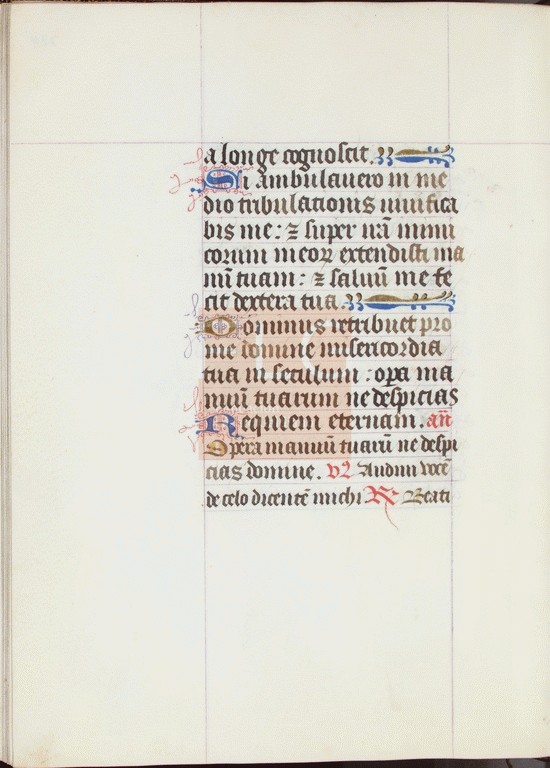 a longe cognoscit.
Si ambulauero in me
dio tribulationis uiuifica
bis me: ⁊ super irā inimi
corum meoꝝ extendisti ma
nū tuam: ⁊ saluū me fe
cit dextera tua.
Dominus retribuet pro
me domine misericordia
tua in seculum: oꝑa ma
nuū tuarum ne despicias
Requiem eternam. añ
Opera manuū tuarū ne despi
cias domine. Audiui vocē
de celo dicentē michi ℟ Beati